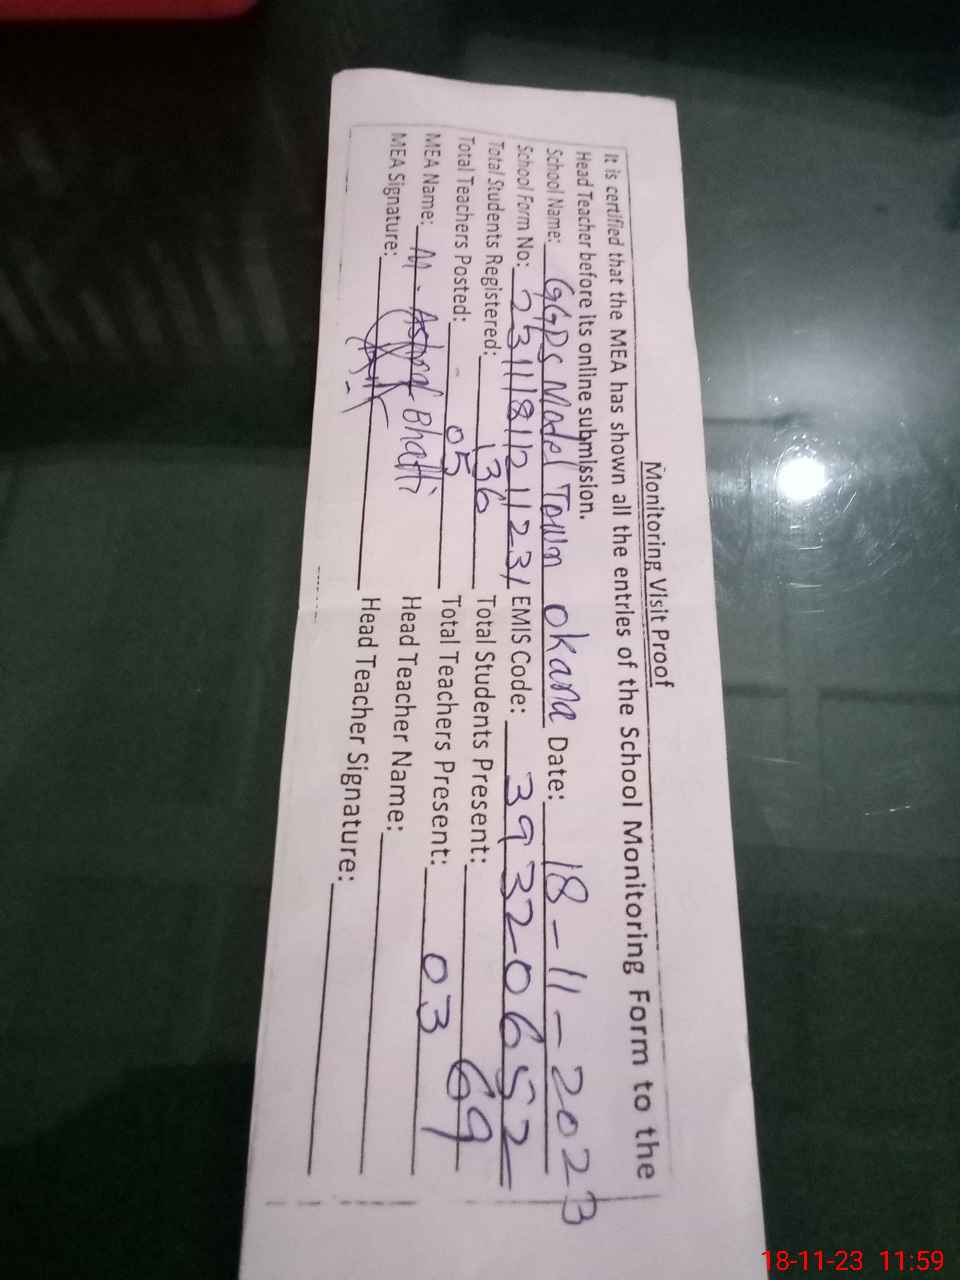 Monitoring Visit Proof
It is certified that the MEA has shown all the entries of the School Monitoring Form to the
Head Teacher before its online submission.
School Name: GGPS Model Town Okara Date: 18-11-2023
School Form No: EMIS Code: 39320652
Total Students Registered: 136 Total Students Present: 69
Total Teachers Posted: 05 Total Teachers Present: 03
MEA Name: M. Ashraf Bhatti Head Teacher Name:
MEA Signature: Head Teacher Signature:
18-11-23 11:59